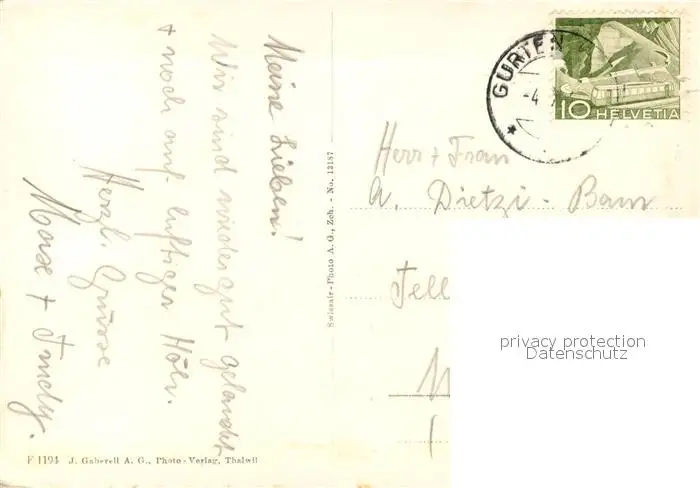 Meine Lieben!
Wir sind wieder gut gelandet
+ noch auf luftiger Höh.
Herzl. Grüsse
Max + Trudy.
F 1194 J. Gaberell A. G., Photo-Verlag, Thalwil
Swissair-Photo A. G., Zch. - No. 13187
GURTEN
-4.
10 HELVETIA
Herr + Frau
A. Dietzi-Baur
Tell
privacy protection
Datenschutz